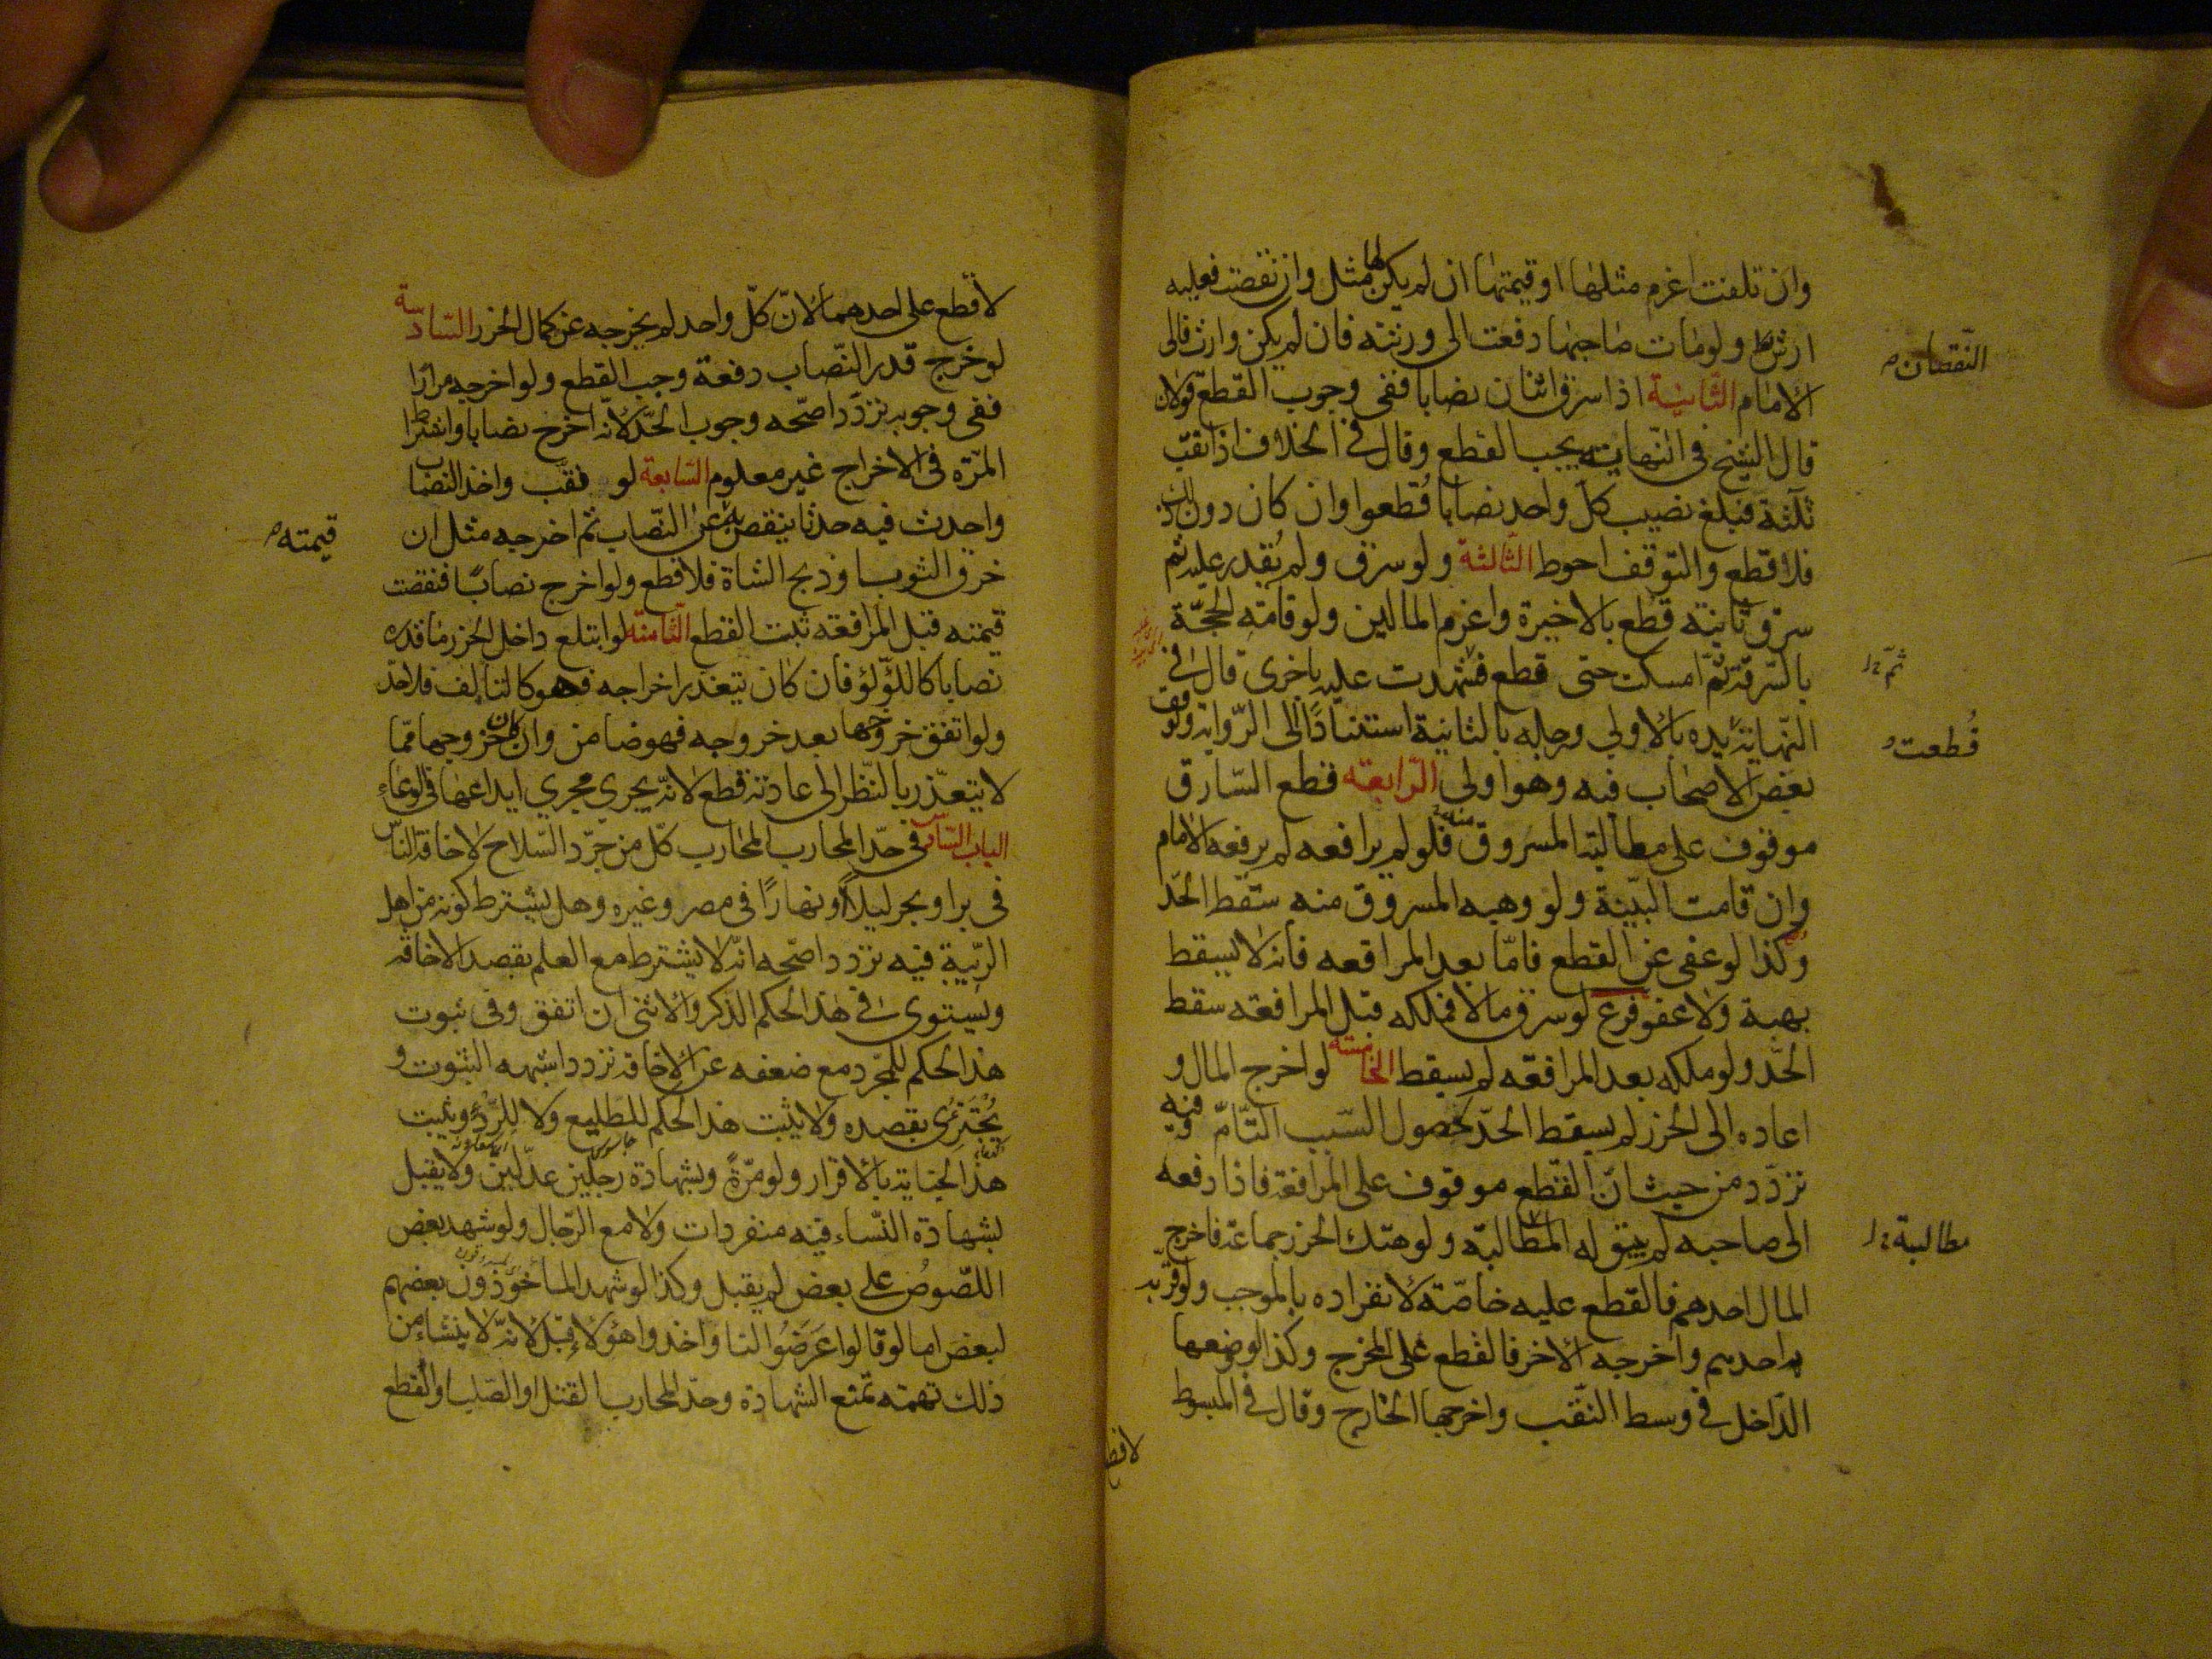 وان تلفت اغرم مثلها او قيمتها ان لم يكن لها مثل وان نقصت فعليه
ارش ولو مات صاحبها دفعت الى ورثته فان لم يكن وارث فالى
النقصان
الامام الثانية اذا سرق اثنان نصابا ففى وجوب القطع قولان
قال الشيخ فى النهاية يجب القطع وقال فى الخلاف اذا نقب
ثلثة فبلغ نصيب كل واحد نصابا قطعوا وان كان دون ذلك
فلا قطع والتوقف احوط الثالثة ولو سرق ولم يقدر عليه ثم
سرق ثانية قطع بالاخيرة واغرم المالين ولو قامة الحجة
بالسرقة ثم امسكت حتى قطع فشهدت عليه باخرى قال فى
ثم
النهاية يده بالاولى ورجله بالثانية استنادا الى الرواية وتوقف
قطعت
بعض الاصحاب فيه وهو اولى الرابعة قطع السارق
موقوف على مطالبة المسروق منه فلو لم يرافعه لم يرفعه الامام
وان قامت البينة ولو وهبه المسروق منه سقط الحد
وكذا لو عفى عن القطع فاما بعد المرافعه فانه لا يسقط
بهبة ولا عفو فرع لو سرق مالا فملكه قبل المرافعة سقط
الحد ولو ملكه بعد المرافعه لم يسقط الخامسة لو اخرج المال و
اعاده الى الحرز لم يسقط الحد لحصول السبب التام وفيه
تردد من حيث ان القطع موقوف على المرافعة فاذا دفعه
الى صاحبه لم يبق له المطالبة ولو هتك الحرز جماعة فاخرج
مطالبة
المال احدهم فالقطع عليه خاصة لانفراده بالموجب ولو قربه
احدهم واخرجه الاخر فالقطع على المخرج وكذا لو وضعها
الداخل فى وسط النقب واخرجها الخارج وقال فى المبسوط
لا قطع
لا قطع على احدهما لان كل واحد لم يخرجه عن كمال الحرز السادسة
لو خرج قدر النصاب دفعة وجب القطع ولو اخرجه مرارا
ففى وجوبه تردد اصحه وجوب الحد لانه اخرج نصابا واشتراط
المرة فى الاخراج غير معلوم السابعة لو نقب واخذ النصاب
واحدث فيه حدثا ينقص به عن النصاب ثم اخرجه مثل ان
قيمته
خرق الثوب او ذبح الشاة فلا قطع ولو اخرج نصابا فنقصت
قيمته قبل المرافعة ثبت القطع الثامنة لو ابتلع داخل الحرز ما قدره
نصابا كاللؤلؤ فان كان يتعذر اخراجه فهو كالتالف فلا حد
ولو اتفق خروجها بعد خروجه فهو ضامن وان كان خروجها مما
لا يتعذر بالنظر الى عادته قطع لانه يجري مجري ايداعها فى الوعاء
الباب السادس فى حد المحارب المحارب كل من جرد السلاح لاخافة الناس
فى بر او بحر ليلا او نهارا فى مصر وغيره وهل يشترط كونه من اهل
الريبة فيه تردد اصحه انه لا يشترط مع العلم بقصد الاخافة
ويستوى فى هذا الحكم الذكر والانثى ان اتفق وفى ثبوت
هذا الحكم للمجرد مع ضعفه عن الاخافة تردد اشبهه الثبوت و
يجتزئ بقصده ولا يثبت هذا الحكم للطليع ولا للردء ويثبت
هذا الجناية بالاقرار ولو مرة وبشهادة رجلين عدلين ولا يقبل
بشهادة النساء فيه منفردات ولا مع الرجال ولو شهد بعض
اللصوص على بعض لم يقبل وكذا لو شهد الماخوذون بعضهم
لبعض اما لو قالوا عرضوا لنا واخذوا هؤلاء قبل لانه لا ينشاء من
ذلك تهمة تمنع الشهادة وحد المحارب القتل او الصلب او القطع